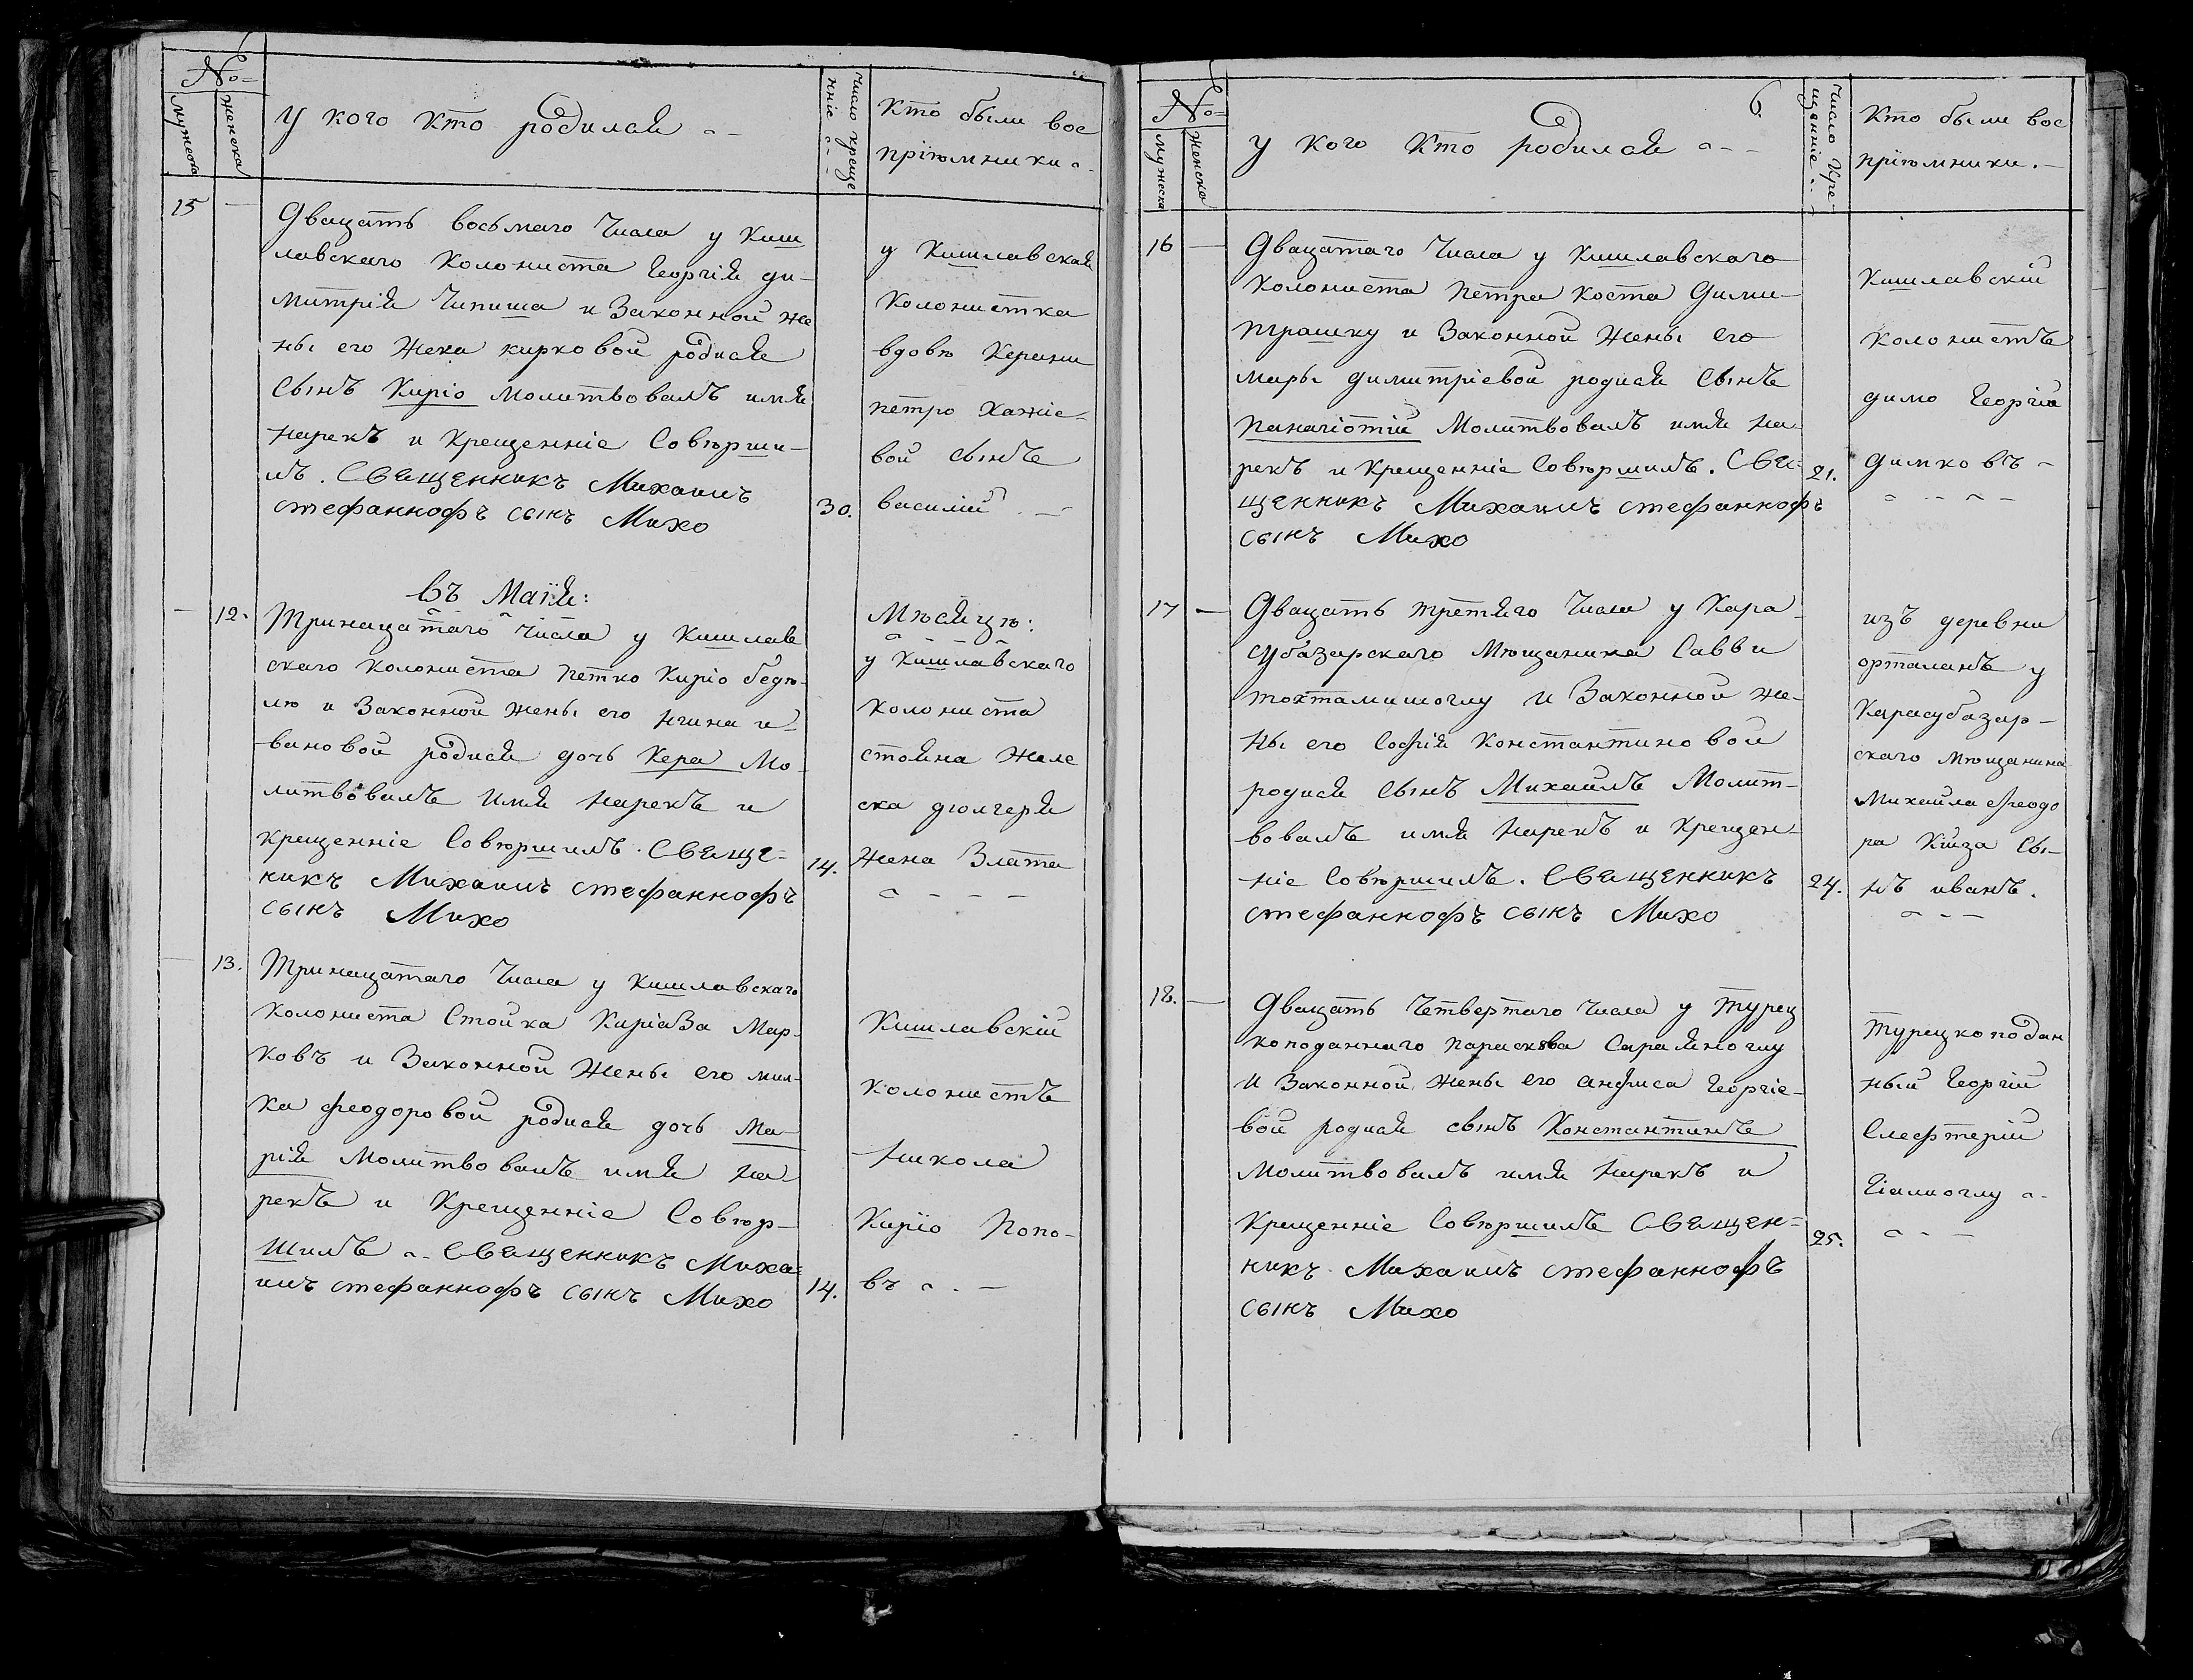 №
мужеска
женска
У кого кто родилай
число креще
ніе
Кто были вос
пріюмники
15
Двацать восьмаго Числа у Киш
лавскаго Колониста Георгій ди-
митрій Чипиша и Законной же
ны его Жека кирковой родися
Сынъ Киріо Молитвовалъ имя
Нарекъ и Крещенніе Совюрши-
лъ. Священникъ Михаилъ
стефаннофъ сынъ Михо
30.
у Кишлавская
Колонистка
вдовю Керани
петро Хажіе-
вой сынъ
василій
въ Маія:
Мюсяцю:
12.
Тринацатаго Числа у Кишлав
скаго колониста петко Киріо бедю-
лю и Законной жены его нгина и
вановой родися дочь Кера Мо-
литвовалъ Имя Нарекъ и
крещенніе Совюршилъ. Свяще-
никъ Михаилъ стефаннофъ
сынъ Михо
14.
у Кишлавскаго
Колониста
стояна Желе
ска дюлгеря
Жена Злата
13.
Тринацатаго Числа у Кишлавскаго
Колониста Стойка КиріаЗа Мар-
ковъ и Законной Жены его мил-
ка феодоровой родися дочь Ма-
рія Молитвовалъ имя На
рекъ и Крещенніе Совюр-
Шилъ Священникъ Миха-
илъ стефаннофъ сынъ Михо
14.
Кишлавскій
колонистъ
Никола
Киріо Попо-
въ
6
№
Мужеска
Женска
У кого Кто родилай
Число Кре-
щенніе
Кто были вос
пріюмники.
16
Двацатаго Числа у Кишлавскаго
Колониста Петра Коста Дими-
трашку и Законной Жены его
мары димитріевой родися Сынъ
Панагіотій Молитвовалъ имя на-
рекъ и Крещенніе Совюршилъ. Свя-
щенникъ Михаилъ стефаннофъ
сынъ Михо
21.
Кишлавскій
колонистъ
димо Георгія
Димковъ
17
Двацать третяго Числа у Кара-
субазарскаго Мющанина Савви
тохтамишоглу И Законной же-
ны его Софія Константиновой
родися Сынъ Михаилъ Молит-
вовалъ имя Нарекъ и Крещен-
ніе Совюршилъ. Священникъ
стефаннофъ сынъ Михо
24.
изъ деревни
орталанъ у
Карасубазар-
скаго мющанина
Михаила Феодо
ра Кніза Сы-
нъ иванъ.
18.
Двацать Четвертаго Числа у Турец
коподаннаго параскѣва Сараяноглу
И Законной жены его анфиса Георгіе-
вой родися сынъ Константинъ
Молитвовалъ имя Нарекъ и
Крещенніе Совюршилъ Священ-
никъ Михаилъ стефаннофъ
сынъ Михо
25.
Турецкоподан
ный Георгій
Елефтерій
Гіамоглу